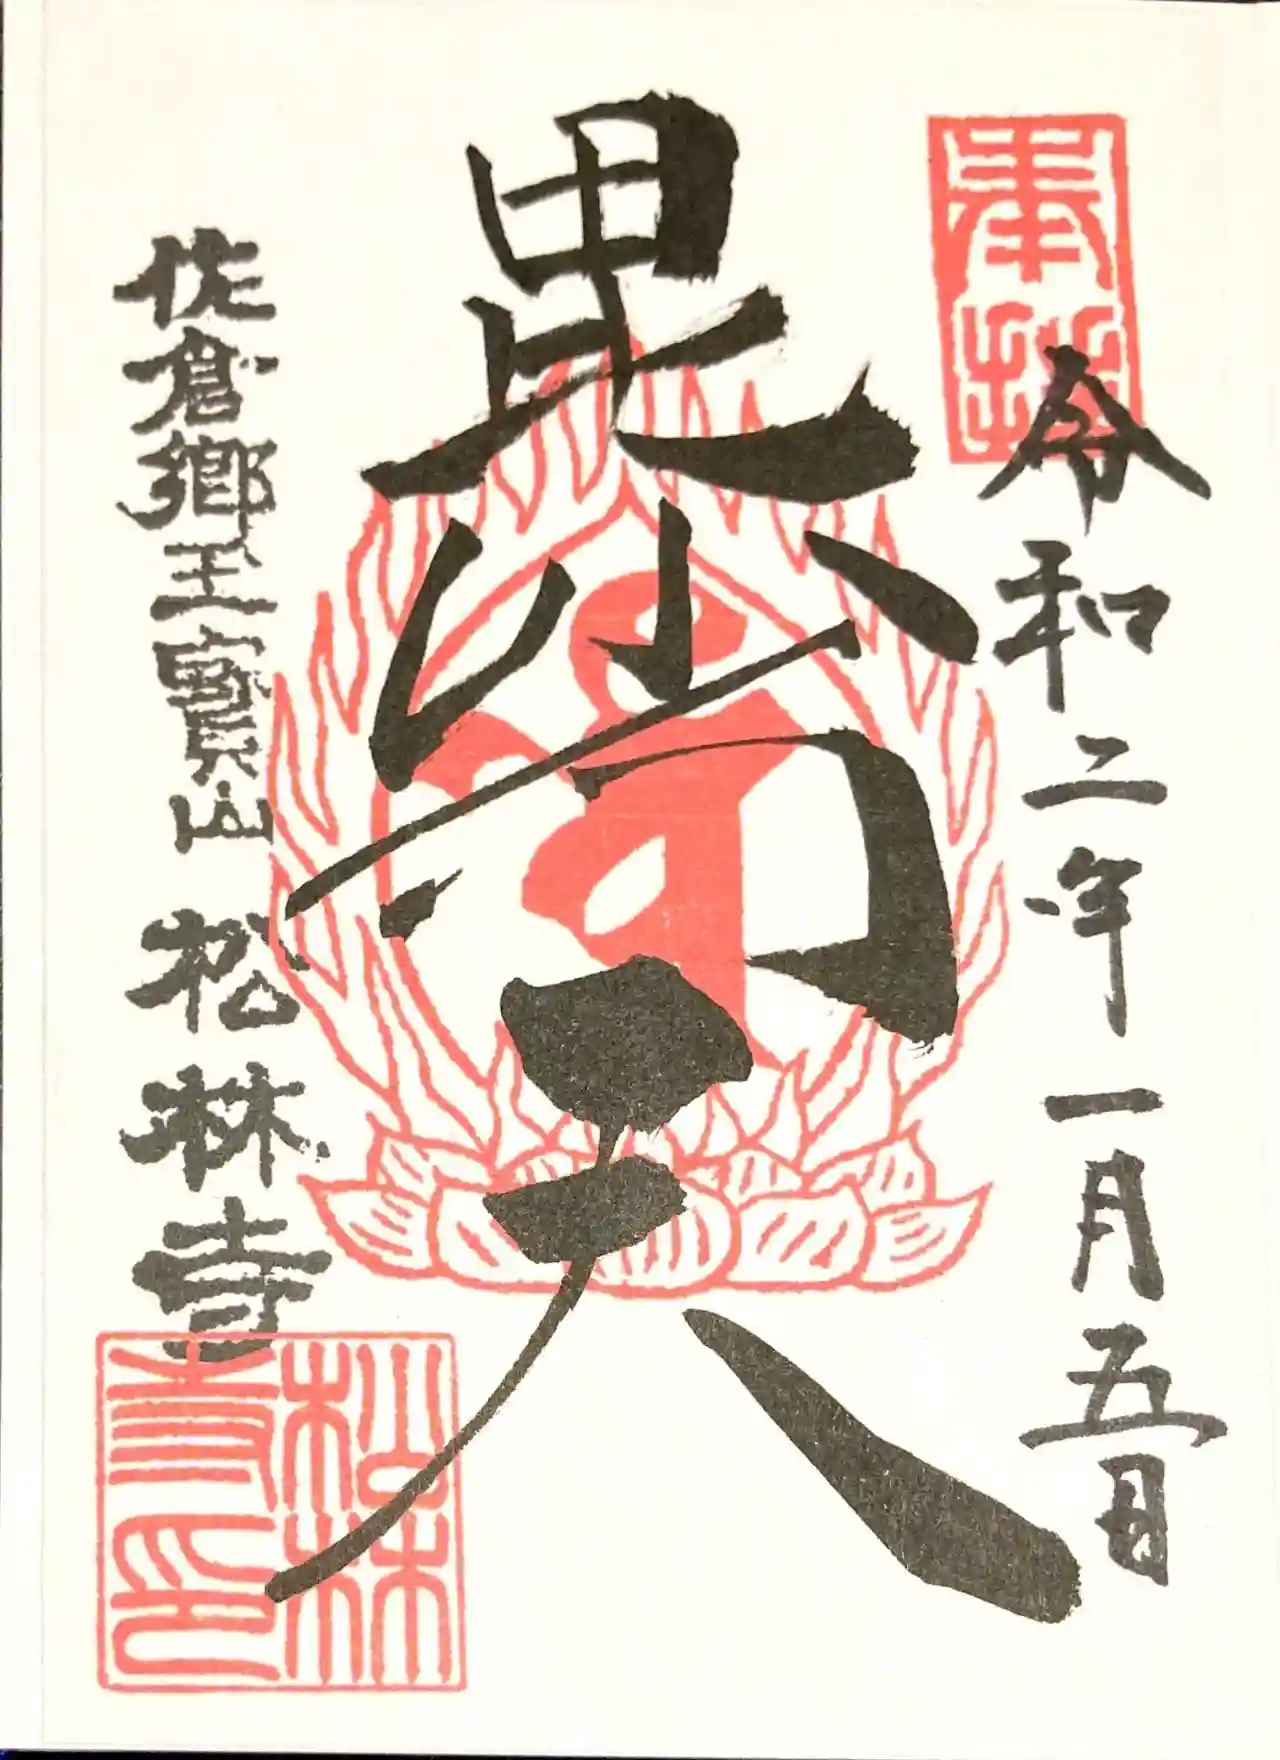 奉拝
令和二年一月五日
毘沙门天
佐倉郷玉寳山 松林寺
松林寺印